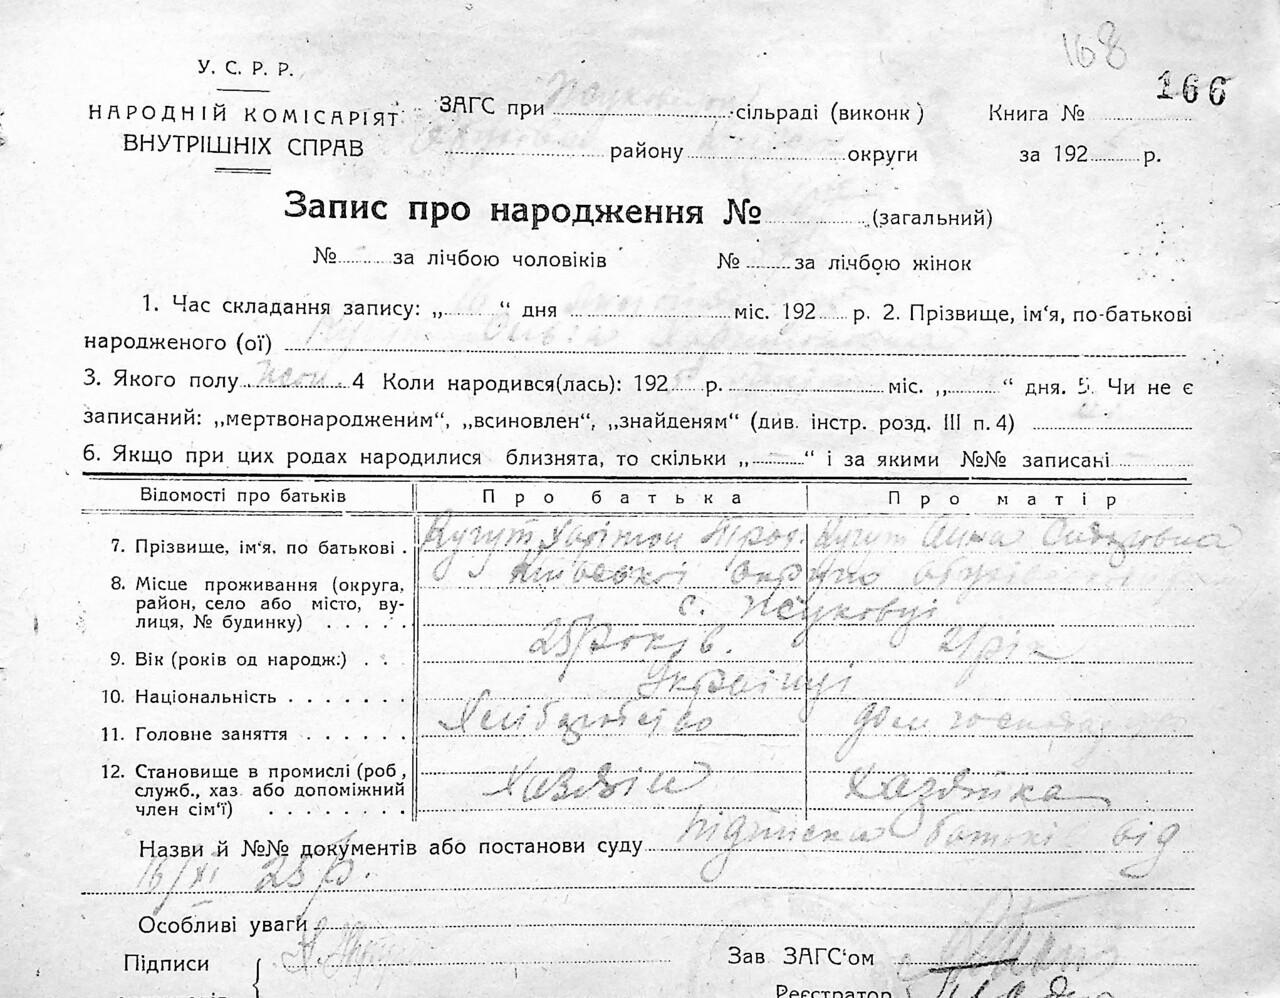 168
166
У. С. Р. Р.
НАРОДНІЙ КОМІСАРІЯТ
ВНУТРІШНІХ СПРАВ
ЗАГС при сільраді (виконк) Книга №
району округи за 192 р.
Запис про народження № (загальний)
№ за лічбою чоловіків № за лічбою жінок
1. Час складання запису: „ 16 “ дня міс. 192 р. 2. Прізвище, ім'я, по-батькові
народженого (ої) Ольга
3. Якого полу жін. 4 Коли народився(лась): 192 р. міс. „ “ дня. 5. Чи не є
записаний: „мертвонародженим“, „всиновлен“, „знайденям“ (див. інстр. розд. III п. 4)
6. Якщо при цих родах народилися близнята, то скільки „ “ і за якими №№ записані
Відомості про батьків Про батька Про матір
7. Прізвище, ім'я. по батькові . Кугут Харітон Кугут Анна
8. Місце проживання (округа, Київської округи
район, село або місто, ву- с. Жуковці
лиця, № будинку) . . . . .
9. Вік (років од народж.) . . 25 років. 21 рік
10. Національність . . . . . . . Українці
11. Головне заняття . . . . . . Хліборобство дом господар
12. Становище в промислі (роб, Хазяїн Хазяйка
служб., хаз або допоміжний
член сім'ї) . . . . . . . .
Назви й №№ документів або постанови суду Підписка батьків від
16/XI 25 р.
Особливі уваги
Підписи
Зав ЗАГС'ом
Реєстратор